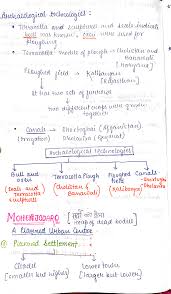 Archaeological technologies:
• Terracotta and sculptures and seals indicate
bull was known, oxen were used for
ploughing
• Terracotta models of plough → Cholistan and
Banawali
(Haryana)
Ploughed field → Kalibangan
(Rajasthan)
↓
it has two sets of furrows
↓
two different crops were grown
together
• Canals → Shortughai (Afghanistan)
(Irrigation) Dholavira (Gujarat)
Archaeological Technologies
Bull and
oxen
(Seals and
Terracotta
Sculptures)
Terracotta Plough
(Cholistan &
Banawali)
Ploughed
field
(Kalibangan)
Canals
Shortughai
Dholavira
MOHENJODARO
[मृतकों का टीला]
[heap of dead bodies]
A Planned Urban Centre
Planned Settlement
Citadel
(smaller but higher)
Lower town
(larger but lower)